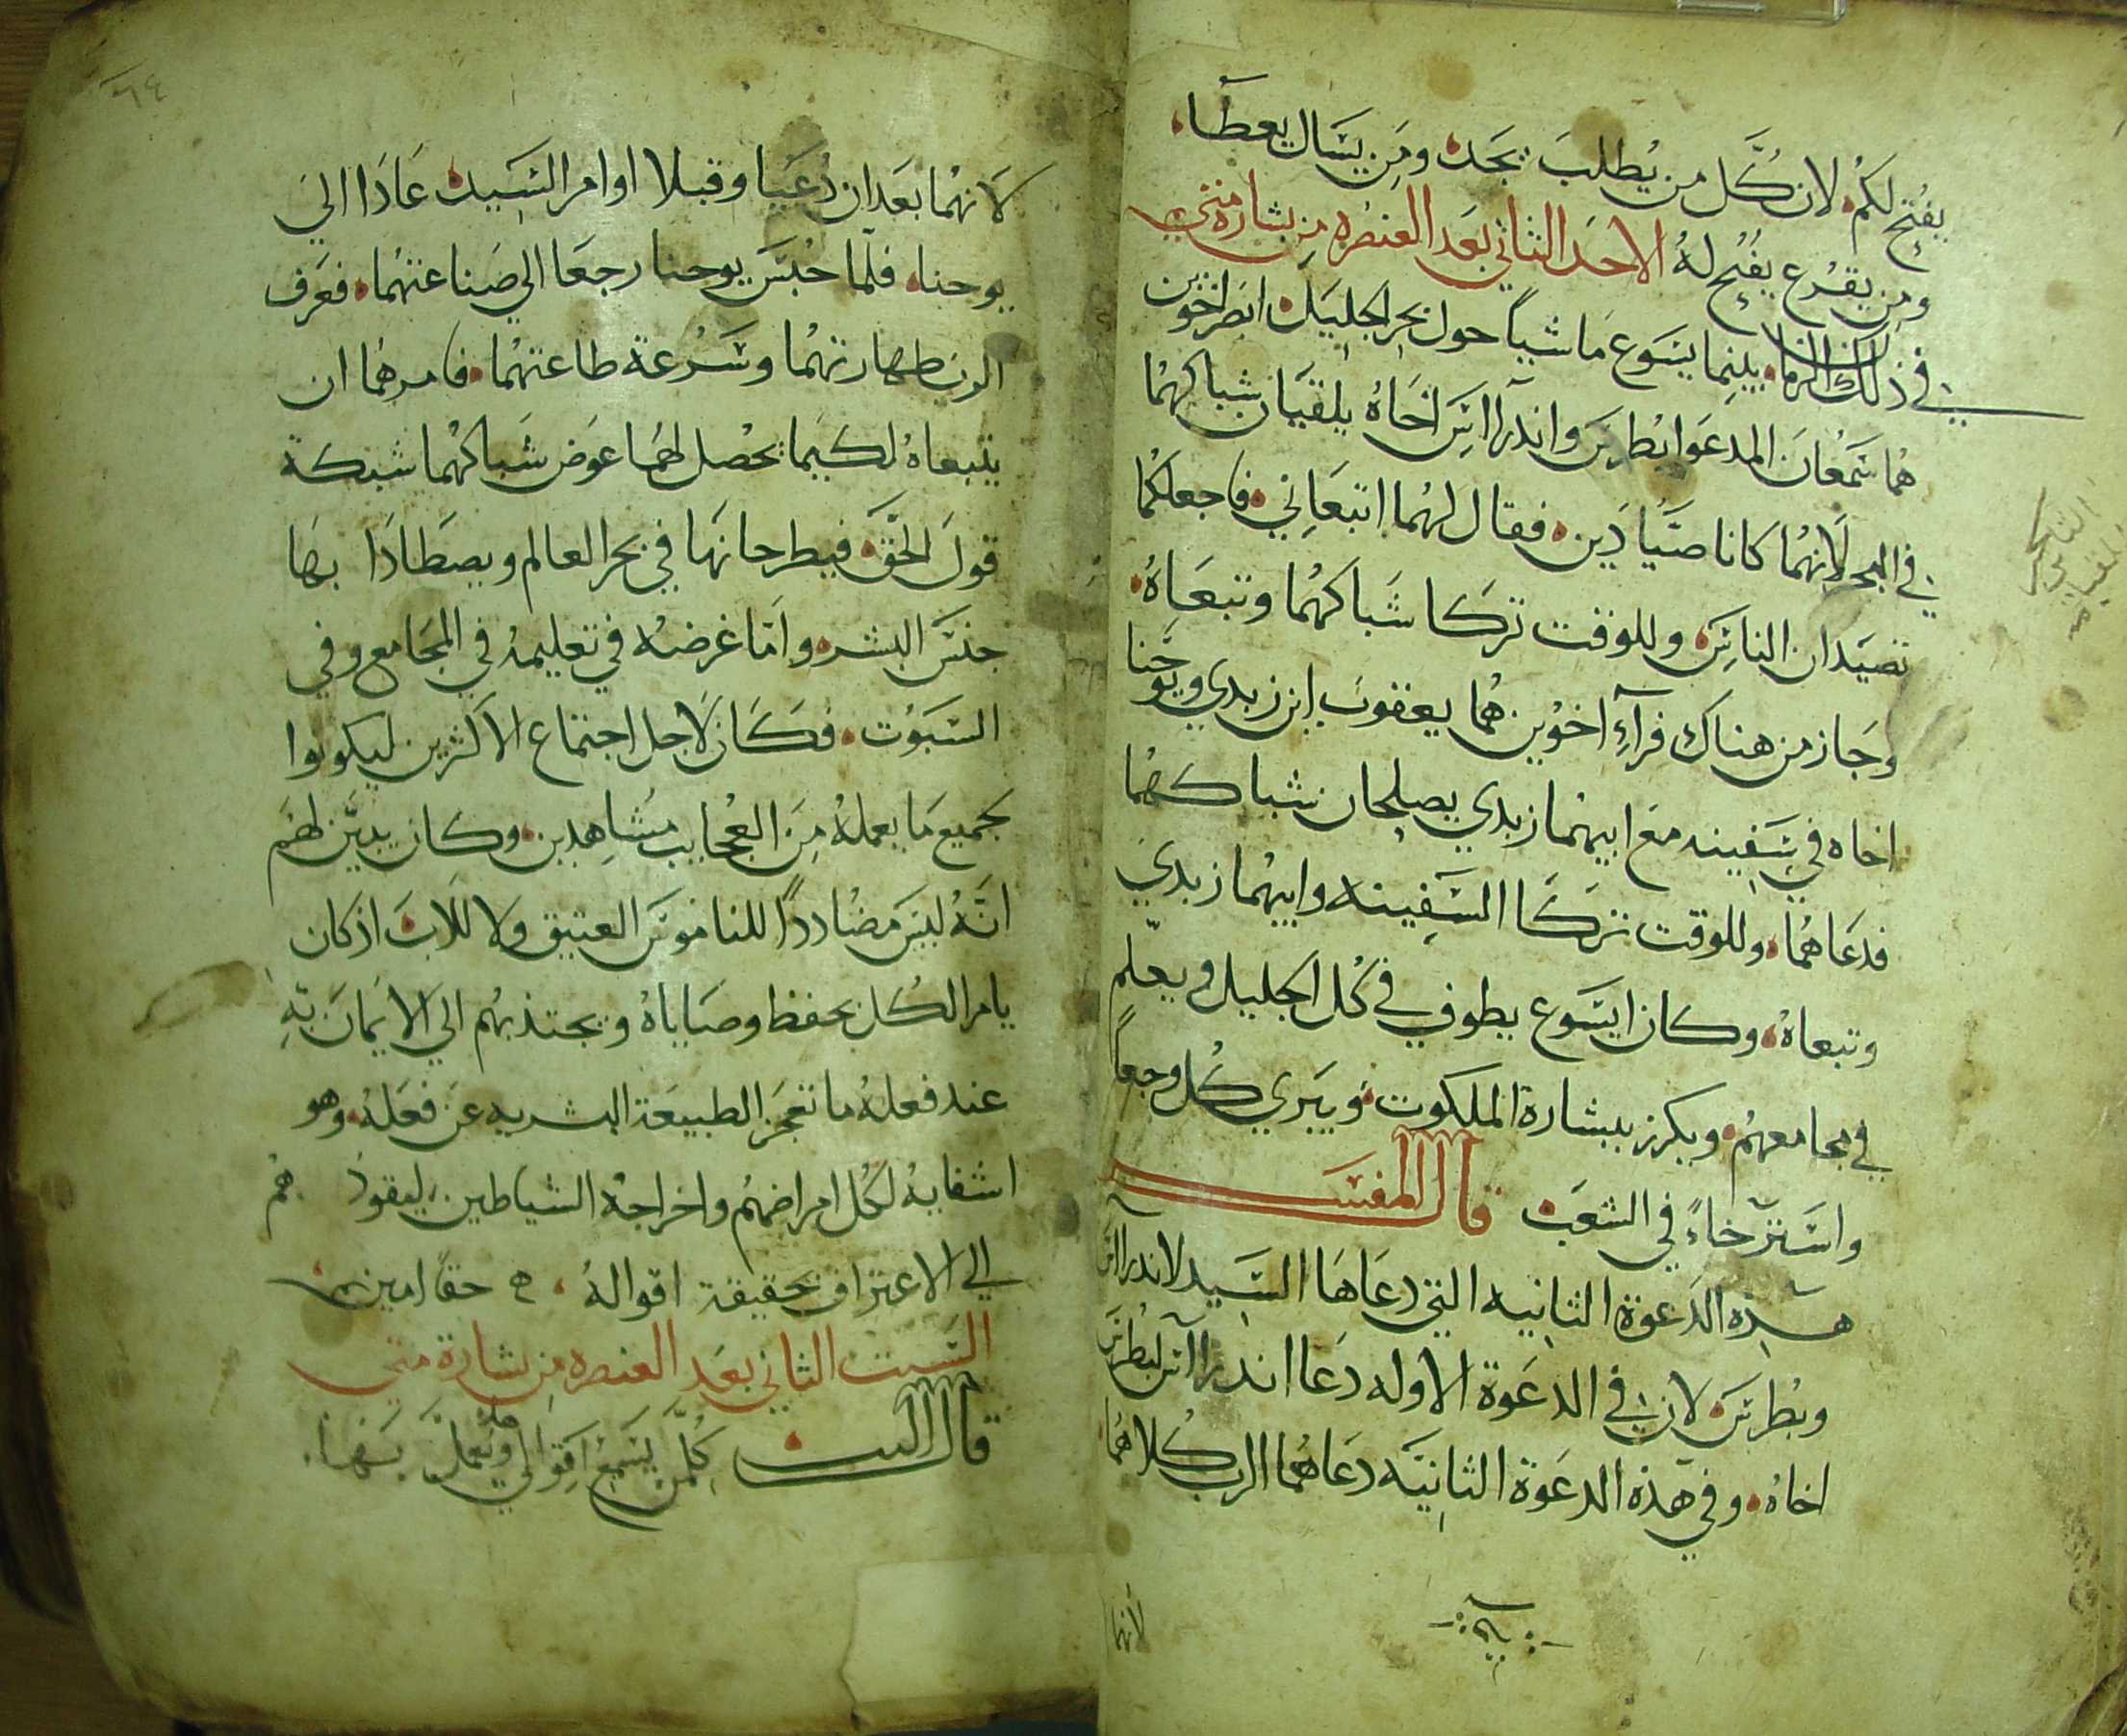 يفتح لكم. لان كل من يطلب يجد. ومن يسال يعطا.
ومن يقرع يفتح له الاحد الثاني بعد العنصره من بشارة متي
في ذلك الزمان بينما يسوع ماشياً حول بحر الجليل. ابصر اخوين
هما سمعان المدعوا بطرس واندراس اخاه يلقيان شباكهما
في البحر لانهما كانا صيادين. فقال لهما اتبعاني. فاجعلكما
تصيدان الناس. وللوقت تركا شباكهما وتبعاه.
وجاز من هناك فرآء اخوين هما يعقوب ابن زبدي ويوحنا
اخاه في سفينه مع ابيهما زبدي يصلحان شباكهما
فدعاهما. وللوقت تركا السفينه وابيهما زبدي
وتبعاه. وكان ايسوع يطوف في كل الجليل ويعلم
في مجامعهم. ويكرز ببشارة الملكوت. ويبري كل وجعاً
واسترخاءً في الشعب. قال المفسر
هذه الدعوة الثانيه التي دعاها السيد لاندراس
وبطرس. لان في الدعوة الاوله دعا اندراس لبطرس
اخاه. وفي هذه الدعوة الثانيه دعاهما الرب كلاهما
لانهما
٦٤
لانهما بعد ان دعيا وقبلا اوامر السيد. عادا الى
يوحنا. فلما حبس يوحنا رجعا الي صناعتهما. فعرف
الرب طهارتهما وسرعة طاعتهما. فامرهما ان
يتبعاه لكيما يحصل لهما عوض شباكهما شبكة
قول الحق. فيطرحانها في بحر العالم ويصطادا بها
جنس البشر. واما غرضه في تعليمه في المجامع وفي
السبوت. فكان لاجل اجتماع الاكثرين ليكونوا
بجميع ما يعمله من العجايب مشاهدين. وكان يبين لهم
انه ليس مضادداً للناموس العتيق ولا للاب. اذ كان
يامر الكل بحفظ وصاياه. ويجتذبهم الي الايمان به
عند فعله ما تعجز الطبيعة البشريه عن فعله. وهو
اشفايه لكل امراضهم واخراجه الشياطين. ليقودهم
الي الاعتراف بحقيقة اقواله. حقاً امين
السبت الثاني بعد العنصره من بشارة متى
قال الرب. كلمن يسمع اقوالي ويعمل بها.